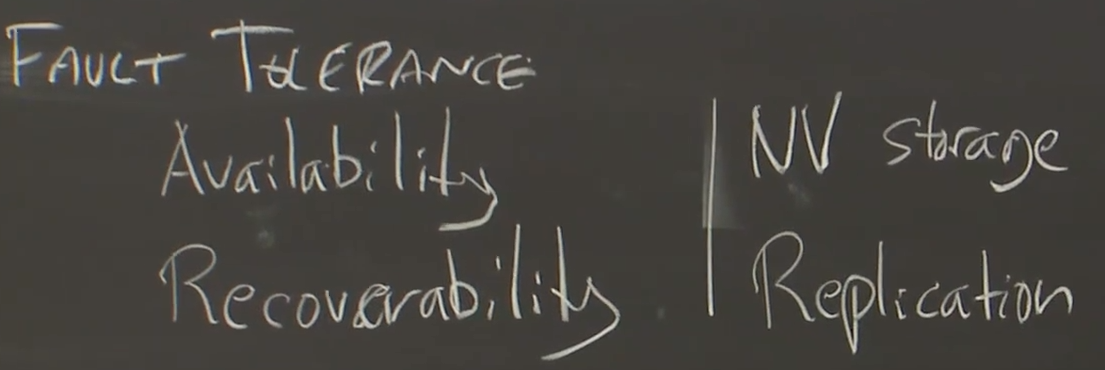 FAULT TOLERANCE
Availability
Recoverability
NV storage
Replication